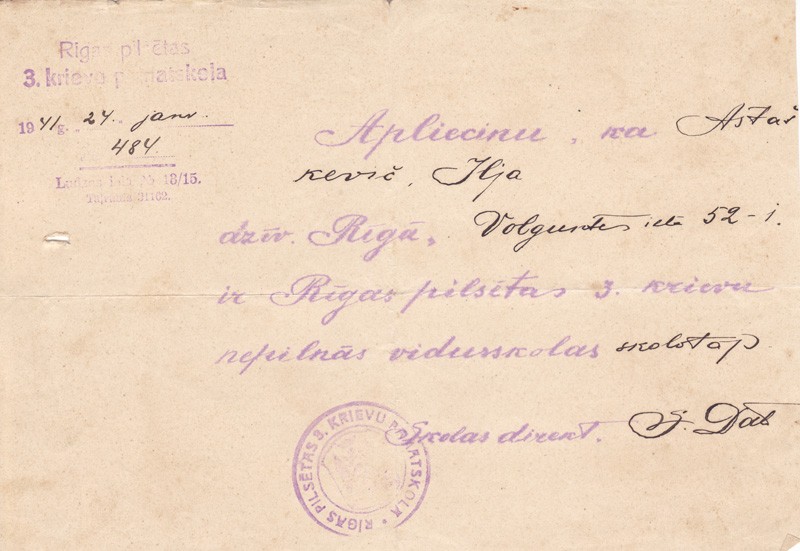 Rīgas pilsētas
3. krievu pamatskola
1941 g. „24„ janv.
484.
13/15.
Tālrunis 31102.
Apliecinu, ka Astaš
kevič, Iļja
dzīv. Rīgā, Volguntes ielā 52-1.
ir Rīgas pilsētas 3. krievu
nepilnās vidusskolas
Skolas direkt.
RĪGAS PILSĒTAS 3. KRIEVU PAMATSKOLA